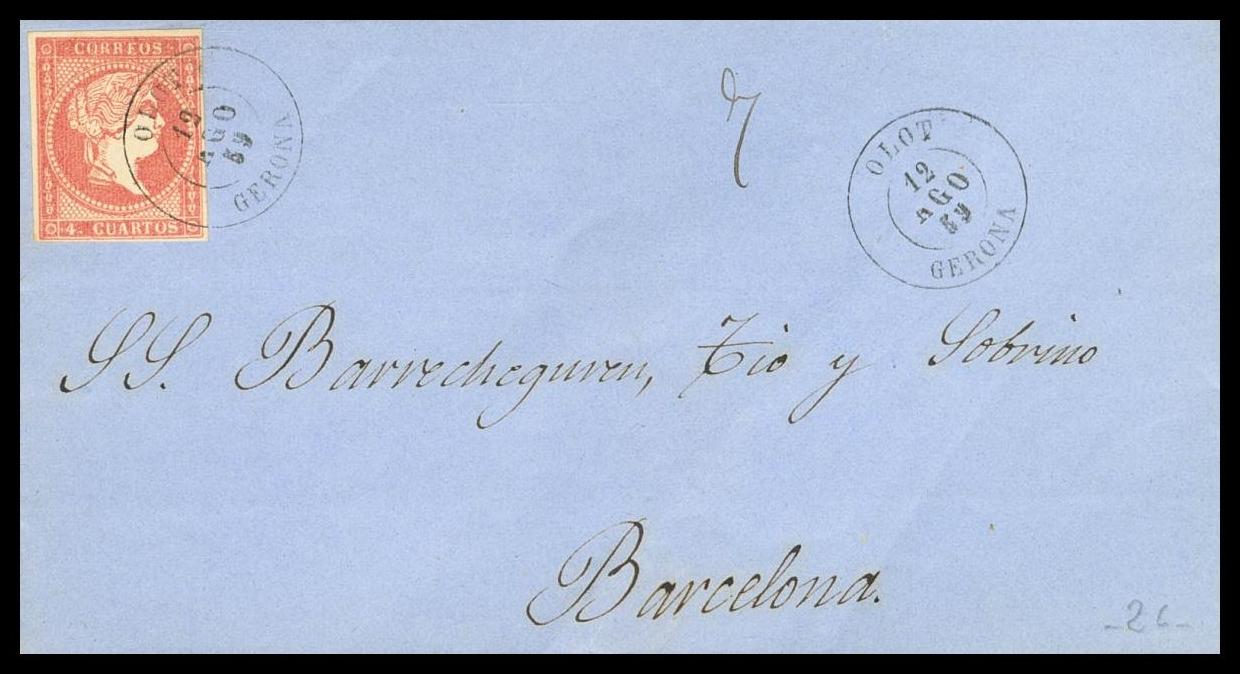 CORREOS
4. CUARTOS
12
AGO
59
GERONA
OLOT
12
AGO
59
GERONA
SS. Barrecheguren, Tio y Sobrino
Barcelona.